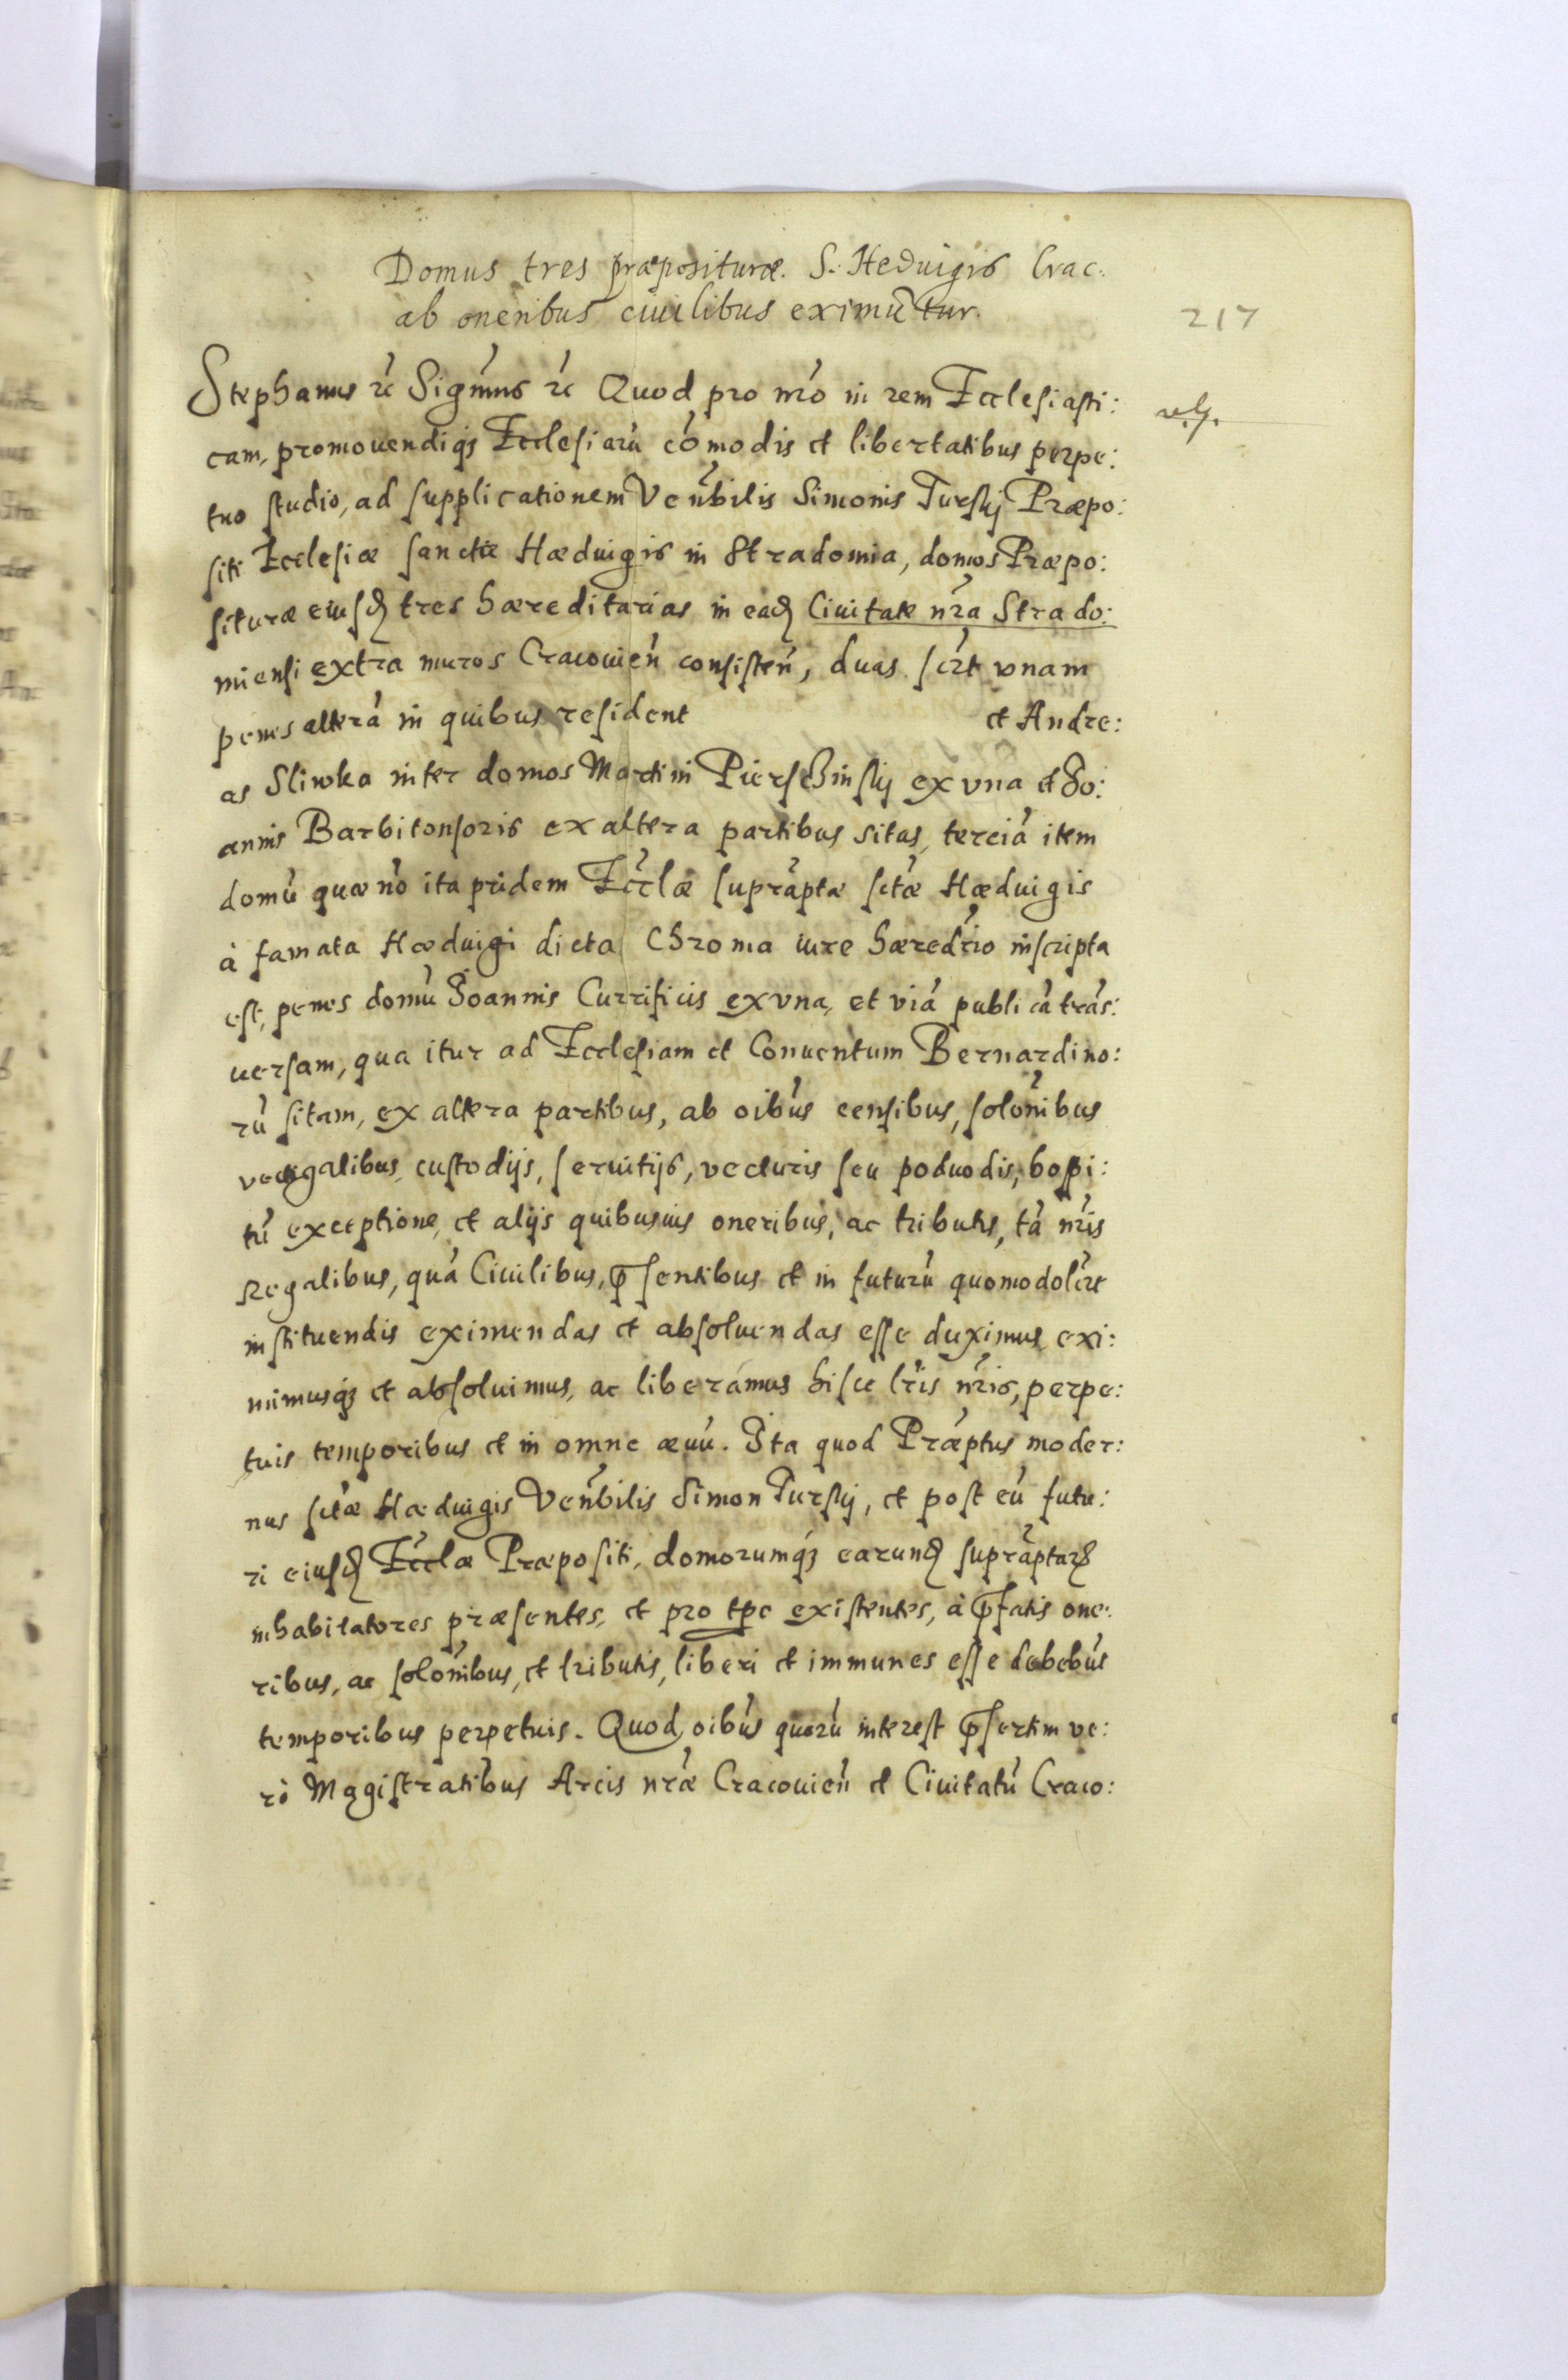 Domus tres præpositura. S. Heduigis Crac.
ab oneribus ciuilibus eximūtur.
217
Stephanus rc Sigmus rc Quod pro nro in rem Ecclesiasti:
cam, promouendiqs Ecclesiarū cōmodis et libertatibus perpe:
tuo studio, ad supplicationem Venbilis Simonis Turskij Præpo:
siti Ecclesiæ sanctæ Hæduigis in Stradomia, domos Præpo:
situræ eiusd tres hæreditarias in ead Ciuitate nra Strado:
miensi extra muros Cracouien consisten, duas sclt vnam
penes alterā in quibus resident et Andre:
as Sliwka inter domos Martini Pierschinskij ex vna et Jo:
annis Barbitonsoris ex altera partibus sitas, terciā item
domū quæ nō ita pridem Eccłæ supraptæ sctæ Hæduigis
à famata Hæduigi dicta Chroma iure hæredrio inscripta
est, penes domū Joannis Currificis ex vna, et viā publicā trās:
uersam, qua itur ad Ecclesiam et Conuentum Bernardino:
rū sitam, ex altera partibus, ab oibus censibus, solonibus
vectigalibus, custodijs, seruitijs, vecturis seu poduodis, hospi:
tū exceptione, et alijs quibusuis oneribus, ac tributis, tā nris
Regalibus, quā Ciuilibus, p̄sentibus et in futurū quomodolcūt
instituendis eximendas et absoluendas esse duximus, exi:
mimusqȝ et absoluimus, ac liberamus hisce lris nris, perpe:
tuis temporibus et in omne æuū. Ita quod Præptus moder:
nus sctæ Hæduigis Venbilis Simon Turskij, et post eū futu:
ri eiusd Eccłæ Præpositi, domorumqȝ earund supraptarꝝ
inhabitatores præsentes, et pro tpe existentes, à p̄fatis one:
ribus, ac solonibus, et tributis, liberi et immunes esse debebūt
temporibus perpetuis. Quod oibus quorū interest p̄sertim ve:
rò Magistratibus Arcis nræ Cracouien et Ciuitatū Craco: